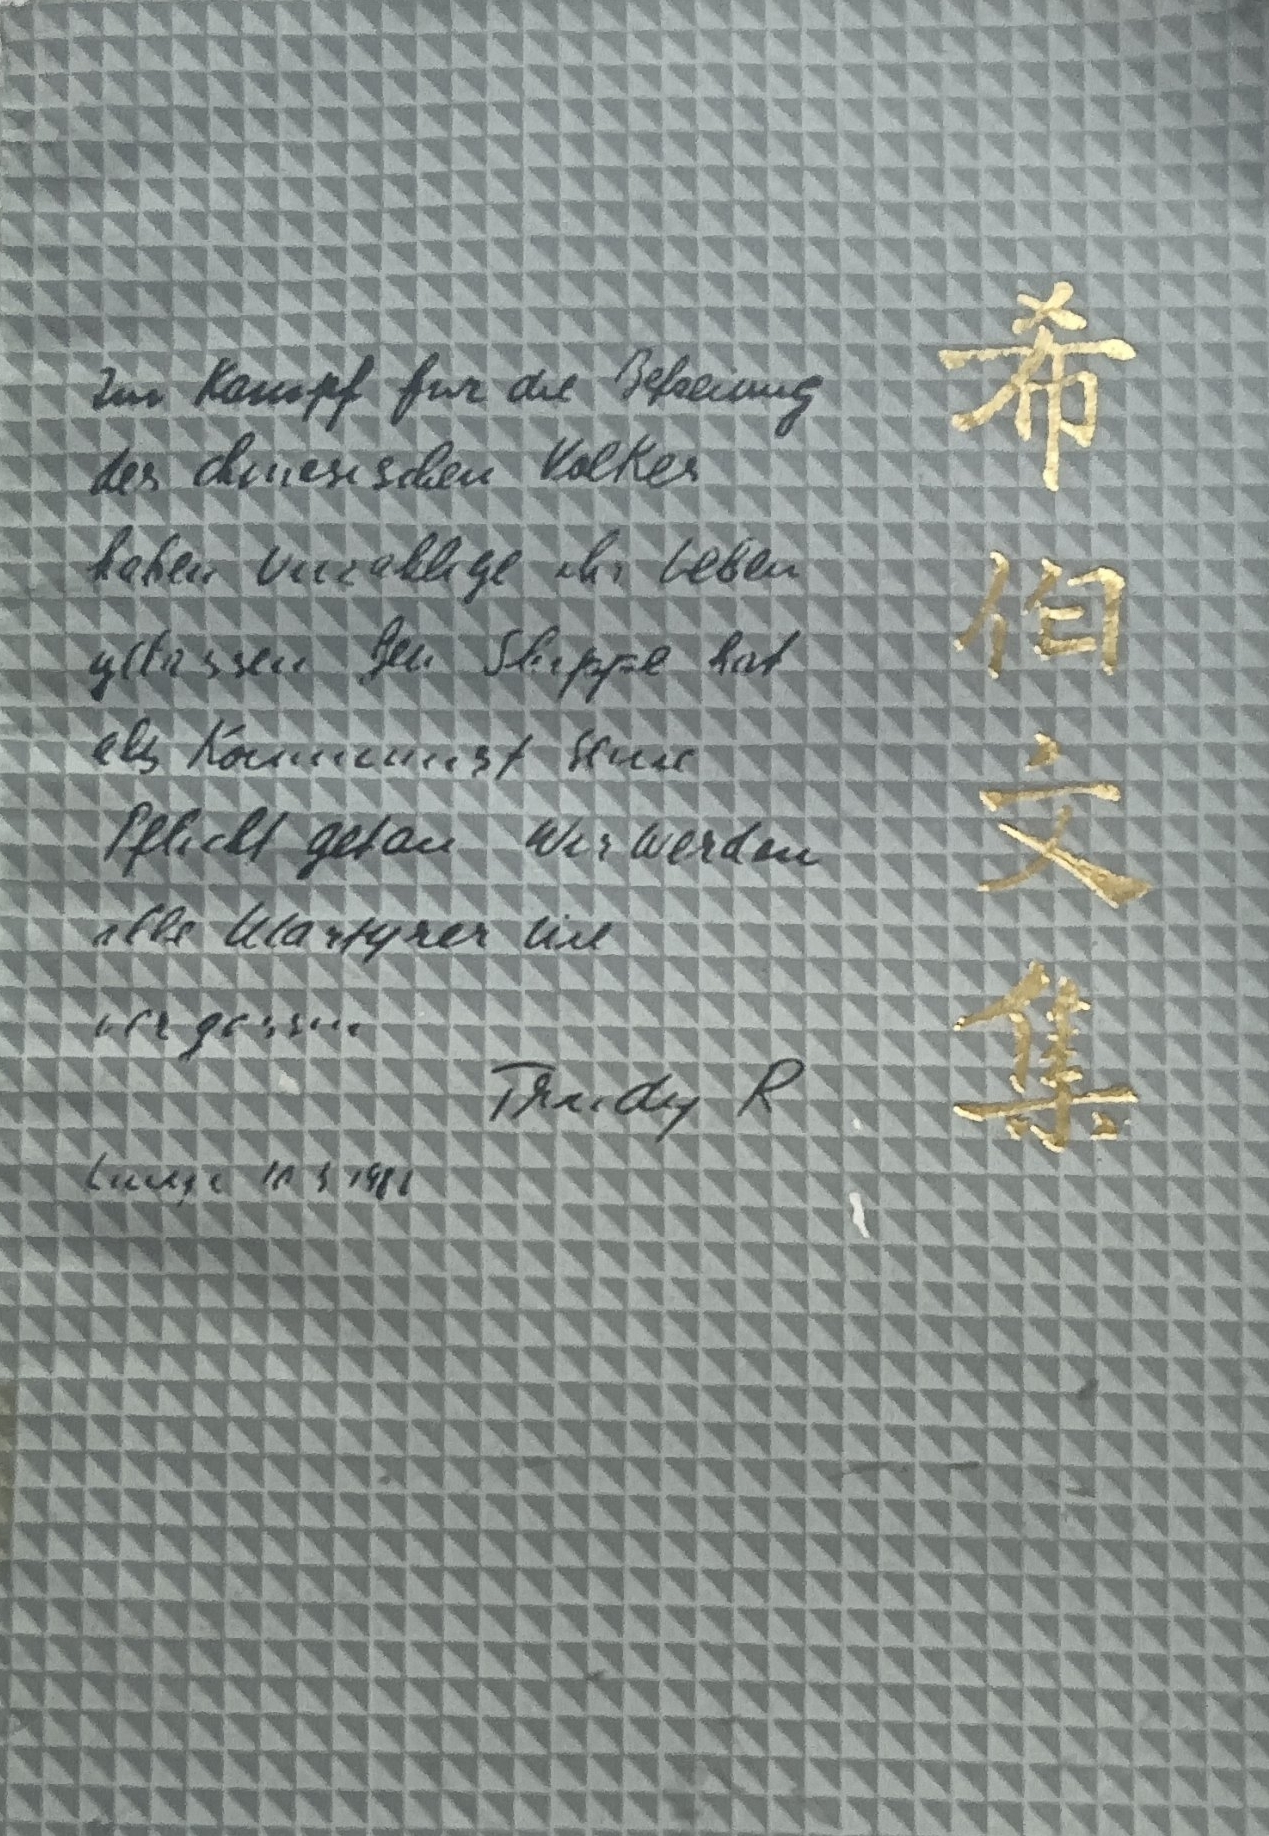 Im Kampf für die Befreiung
des chinesischen Volkes
haben unzählige ihr Leben
gelassen Gen Shippe hat
als Kommunist seine
Pflicht getan Wir werden
alle Märtyrer nie
vergessen
Trudy R
1981
希伯文集